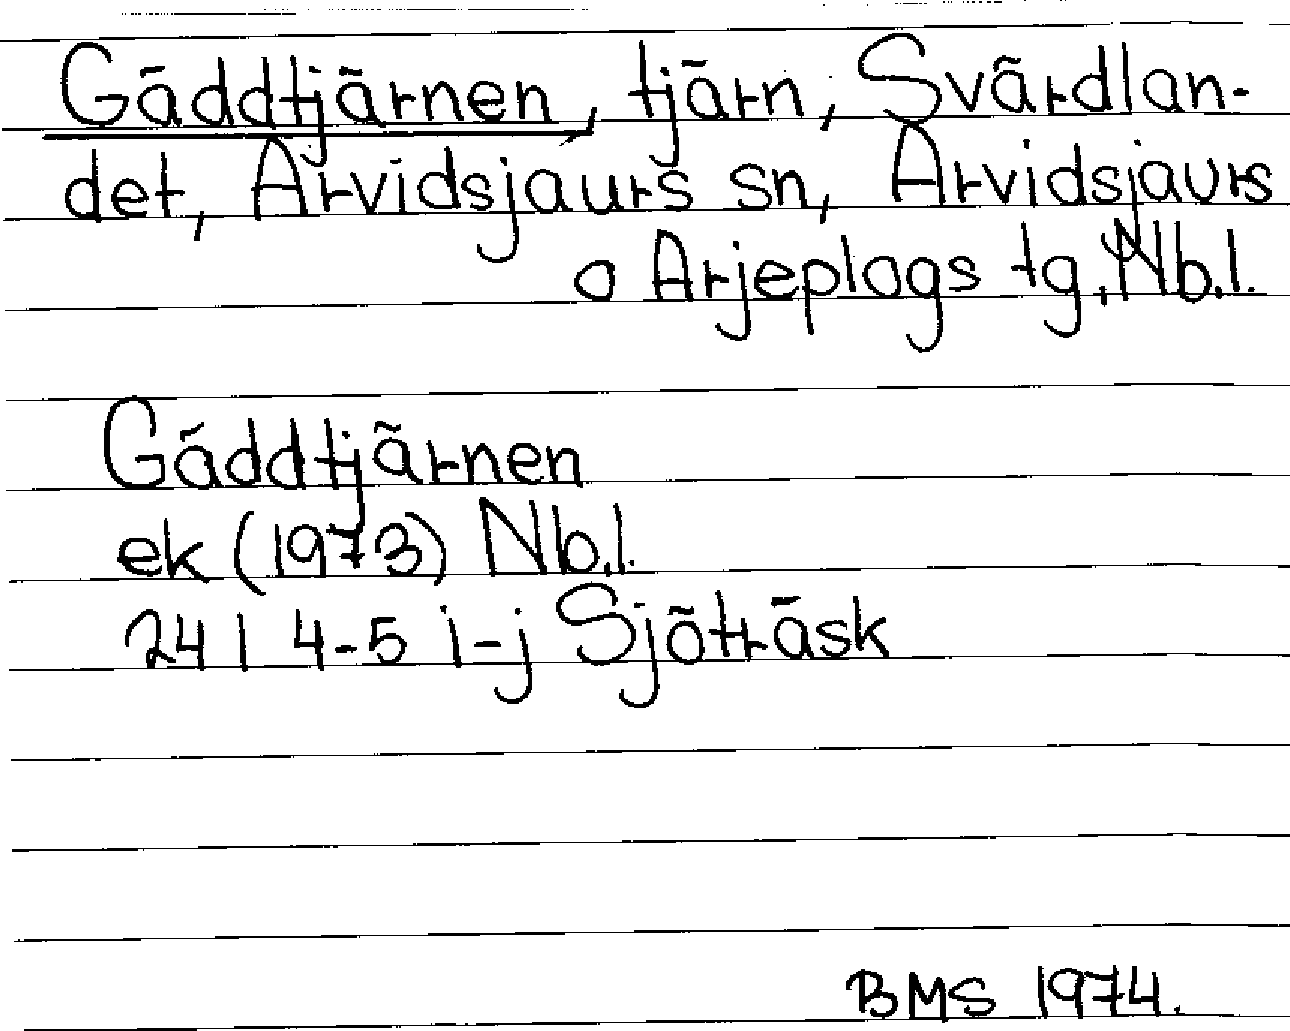 Gäddtjärnen, tjärn, Svärdlan-
det, Arvidsjaurs sn, Arvidsjaurs
o Arjeplogs tg. Nb.l.
Gäddtjärnen
ek (1973) Nb.l.
24 I 4-5 i-j Sjöträsk
BMS 1974.